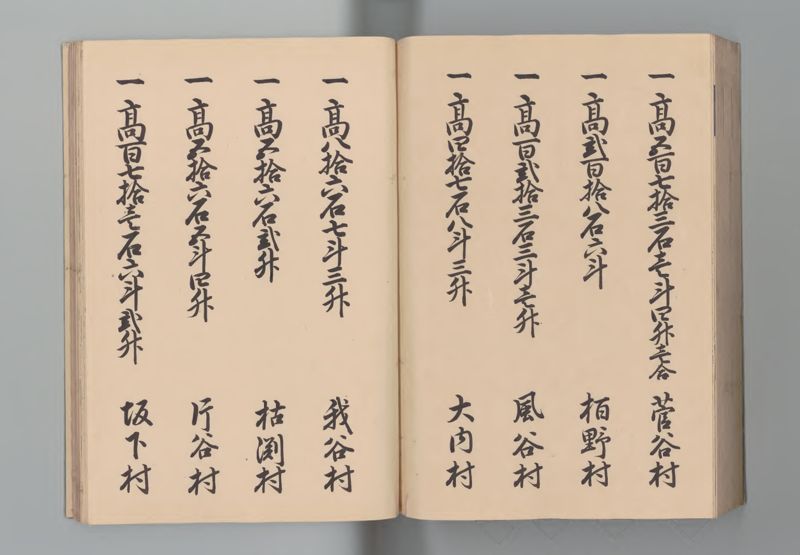 一高五百七拾三石壱斗四升壱合 菅谷村
一高弐百拾八石六斗 栢野村
一高百弐拾三石三斗壱升 風谷村
一高四拾七石八斗三升 大内村
一高八拾六石七斗三升 我谷村
一高五拾六石弐升 枯渕村
一高五拾六石五斗四升 片谷村
一高百七拾壱石六斗弐升 坂下村